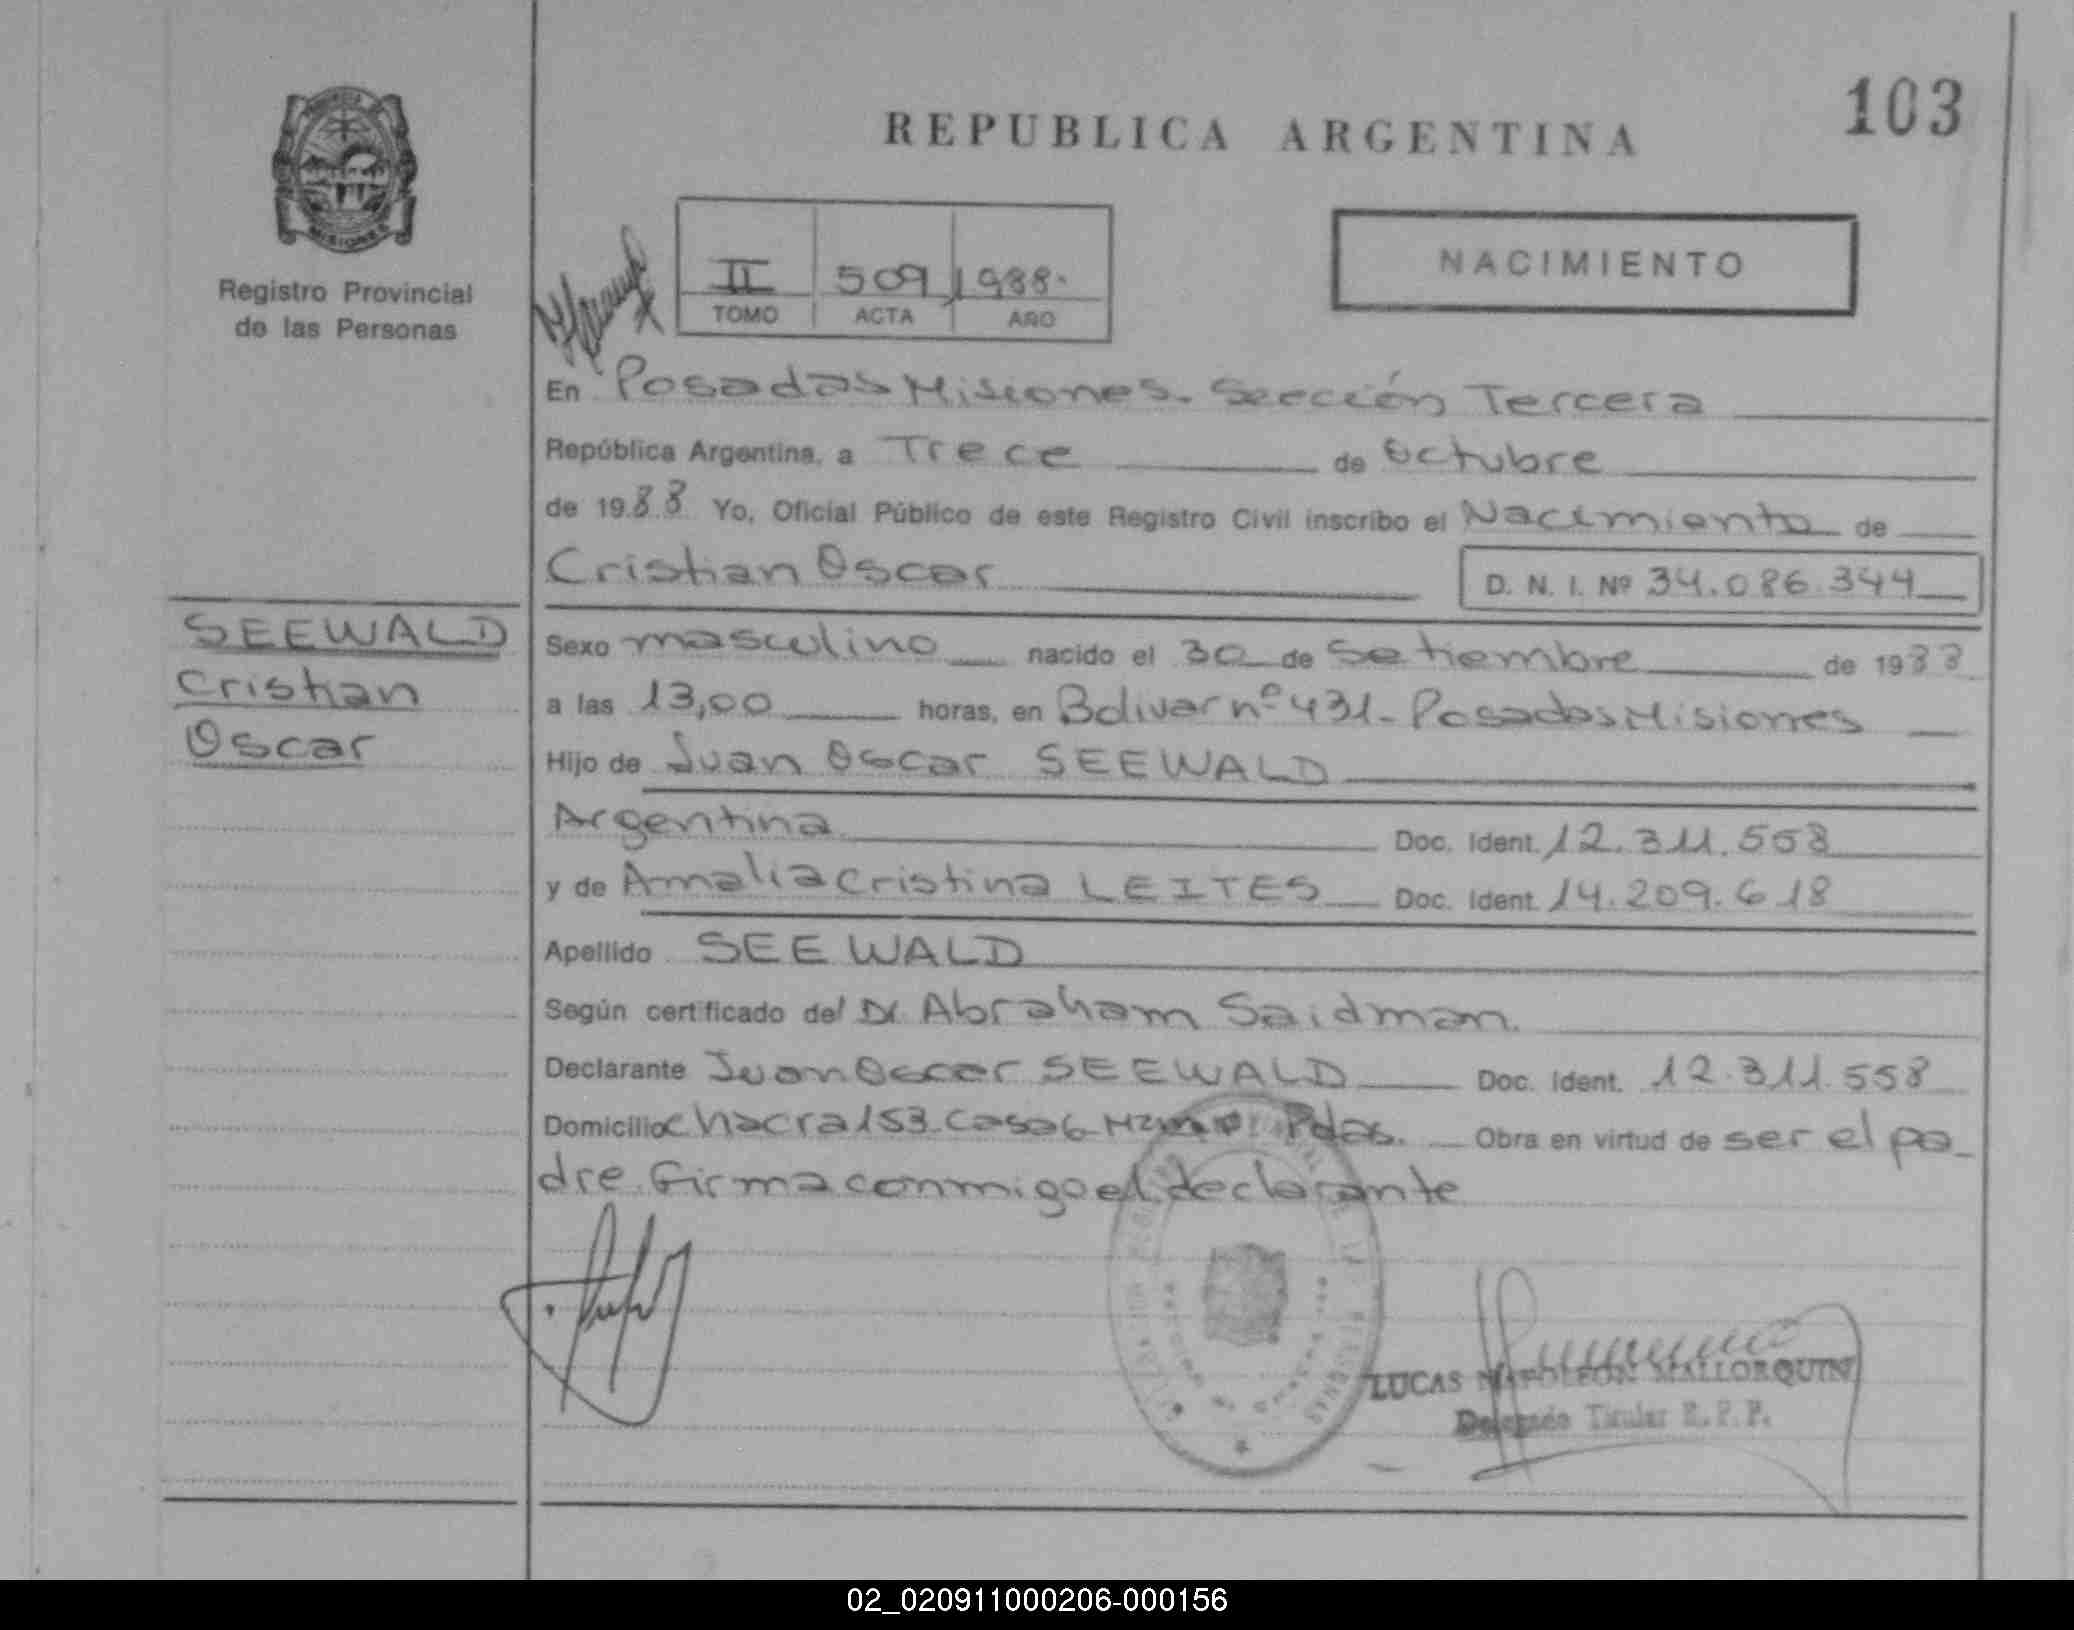 103
REPUBLICA ARGENTINA
MISIONES
Registro Provincial
de las Personas
II 509 1988.
TOMO ACTA AÑO
NACIMIENTO
En Posadas Misiones. Sección Tercera
República Argentina, a Trece de Octubre
de 1988 Yo, Oficial Público de este Registro Civil inscribo el Nacimiento de
Cristian Oscar D. N. I. Nº 34.086.344
SEEWALD
Cristian
Oscar
Sexo masculino nacido el 30 de Setiembre de 1988
a las 13,00 horas, en Bolivar nº 431- Posadas Misiones
Hijo de Juan Oscar SEEWALD
Argentina Doc. Ident. 12.311.558
y de Amalia Cristina LEITES Doc. Ident. 14.209.618
Apellido SEEWALD
Según certificado del Dr. Abraham Saidman.
Declarante Juan Oscar SEEWALD Doc. Ident. 12.311.558
Domicilio chacra 153 casa 6 Pdas. Obra en virtud de ser el pa-
dre. Firma conmigo el declarante
LUCAS NAPOLEON MALLORQUIN
Delegado Titular R.P.P.
02_020911000206-000156